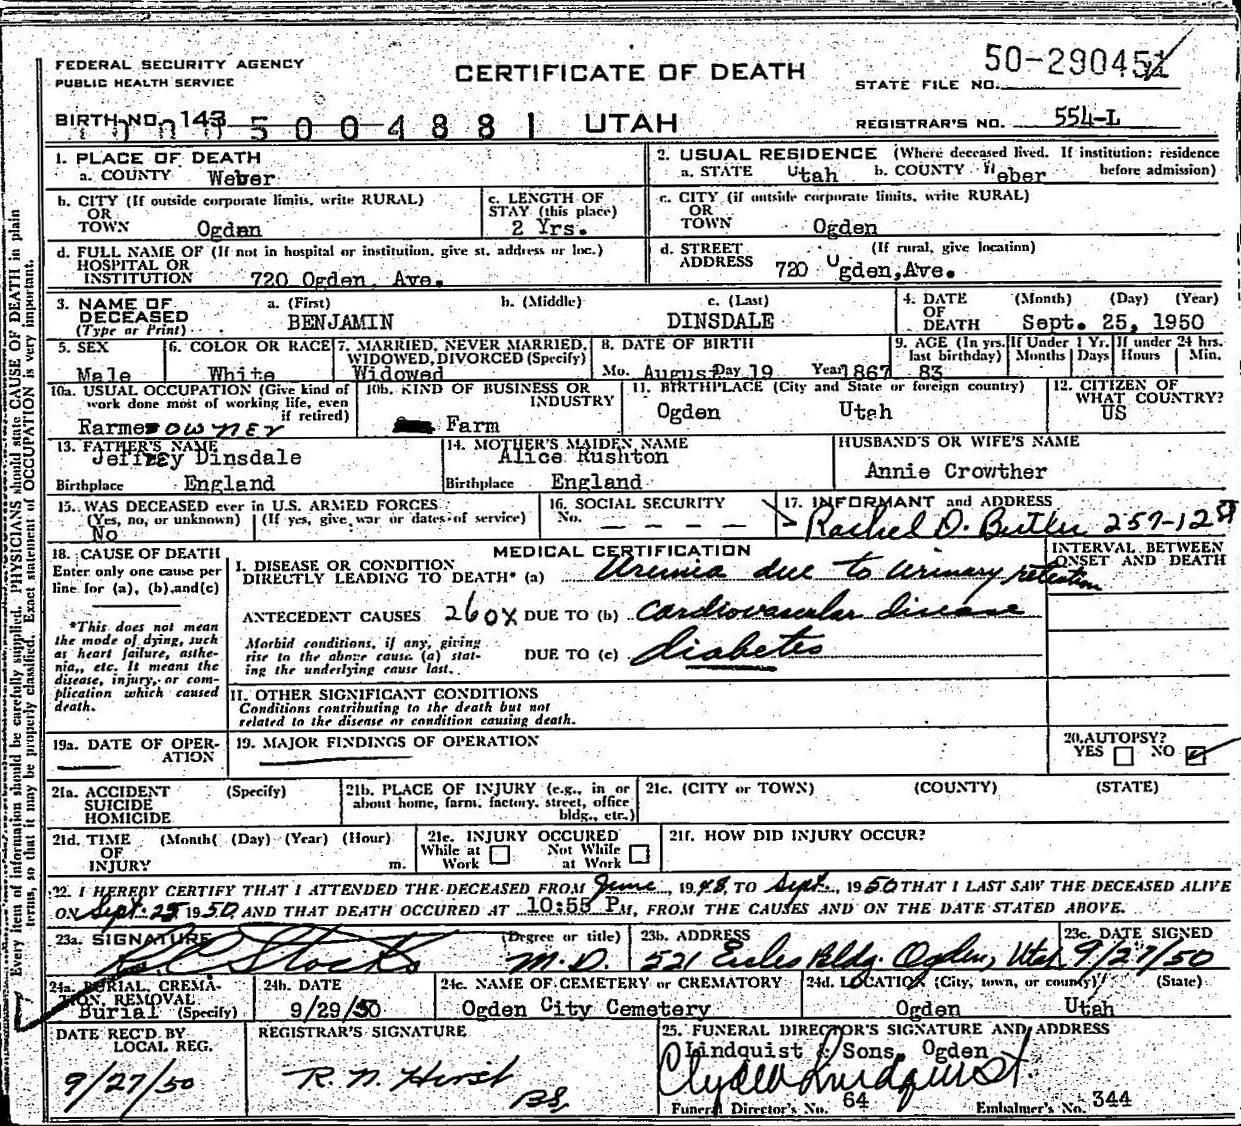 FEDERAL SECURITY AGENCY
PUBLIC HEALTH SERVICE
CERTIFICATE OF DEATH
STATE FILE NO. 50-290451
BIRTH NO. 143
5004881 UTAH
REGISTRAR'S NO. 554-L
1. PLACE OF DEATH
a. COUNTY Weber
2. USUAL RESIDENCE (Where deceased lived. If institution: residence before admission)
a. STATE Utah b. COUNTY Weber
b. CITY (If outside corporate limits, write RURAL)
OR
TOWN Ogden
c. LENGTH OF
STAY (this place)
2 Yrs.
c. CITY (if outside corporate limits, write RURAL)
OR
TOWN Ogden
d. FULL NAME OF (If not in hospital or institution, give st. address or loc.)
HOSPITAL OR
INSTITUTION 720 Ogden Ave.
d. STREET (If rural, give location)
ADDRESS 720 Ogden,Ave.
3. NAME OF
DECEASED
(Type or Print)
a. (First) b. (Middle) c. (Last)
BENJAMIN DINSDALE
4. DATE (Month) (Day) (Year)
OF
DEATH Sept. 25, 1950
5. SEX
Male
6. COLOR OR RACE
White
7. MARRIED, NEVER MARRIED,
WIDOWED, DIVORCED (Specify)
Widowed
8. DATE OF BIRTH
Mo. August Day 19 Year 1867
9. AGE (In yrs.
last birthday)
83
If Under 1 Yr.
Months Days
If under 24 hrs.
Hours Min.
10a. USUAL OCCUPATION (Give kind of
work done most of working life, even
if retired)
Farmer OWNER
10b. KIND OF BUSINESS OR
INDUSTRY
Farm
11. BIRTHPLACE (City and State or foreign country)
Ogden Utah
12. CITIZEN OF
WHAT COUNTRY?
US
13. FATHER'S NAME
Jeffrey Dinsdale
Birthplace England
14. MOTHER'S MAIDEN NAME
Alice Rushton
Birthplace England
HUSBAND'S OR WIFE'S NAME
Annie Crowther
15. WAS DECEASED ever in U.S. ARMED FORCES
(Yes, no, or unknown) (If yes, give war or dates of service)
No
16. SOCIAL SECURITY
No. — — — —
17. INFORMANT and ADDRESS
Rachel D. Butler 257-12 St
18. CAUSE OF DEATH
Enter only one cause per
line for (a), (b), and (c)
*This does not mean
the mode of dying, such
as heart failure, asthe-
nia, etc. It means the
disease, injury, or com-
plication which caused
death.
MEDICAL CERTIFICATION
INTERVAL BETWEEN
ONSET AND DEATH
I. DISEASE OR CONDITION
DIRECTLY LEADING TO DEATH* (a) Uremia due to urinary retention
ANTECEDENT CAUSES 260X DUE TO (b) cardiovascular disease
Morbid conditions, if any, giving
rise to the above cause (a) stat-
ing the underlying cause last.
DUE TO (c) diabetes
II. OTHER SIGNIFICANT CONDITIONS
Conditions contributing to the death but not
related to the disease or condition causing death.
19a. DATE OF OPER-
ATION
19. MAJOR FINDINGS OF OPERATION
20. AUTOPSY?
YES NO
21a. ACCIDENT (Specify)
SUICIDE
HOMICIDE
21b. PLACE OF INJURY (e.g., in or
about home, farm, factory, street, office
bldg., etc.)
21c. (CITY or TOWN) (COUNTY) (STATE)
21d. TIME (Month) (Day) (Year) (Hour)
OF
INJURY m.
21e. INJURY OCCURED
While at Work Not While at Work
21f. HOW DID INJURY OCCUR?
22. I HEREBY CERTIFY THAT I ATTENDED THE DECEASED FROM June, 1948, TO Sept., 1950 THAT I LAST SAW THE DECEASED ALIVE
ON Sept. 25 1950, AND THAT DEATH OCCURED AT 10:55 P M, FROM THE CAUSES AND ON THE DATE STATED ABOVE.
23a. SIGNATURE (Degree or title)
Stocks M.D.
23b. ADDRESS
521 Eccles Bldg. Ogden, Utah
23c. DATE SIGNED
9/27/50
24a. BURIAL, CREMA-
TION, REMOVAL
Burial (Specify)
24b. DATE
9/29/50
24c. NAME OF CEMETERY or CREMATORY
Ogden City Cemetery
24d. LOCATION (City, town, or county) (State)
Ogden Utah
DATE REC'D BY
LOCAL REG.
9/27/50
REGISTRAR'S SIGNATURE
R. N. Hirst
25. FUNERAL DIRECTOR'S SIGNATURE AND ADDRESS
Lindquist & Sons, Ogden
Clyde Lindquist
Funeral Director's No. 64 Embalmer's No. 344
Every item of information should be carefully supplied. PHYSICIANS should state CAUSE OF DEATH in plain
terms, so that it may be properly classified. Exact statement of OCCUPATION is very important.